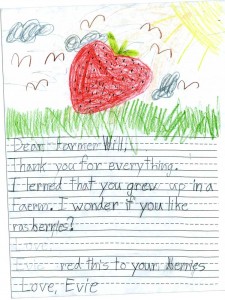 Dear Farmer Will,
Thank you for everything.
I lerned that you grew up in a
faerm. I wonder if you like
rasberries?
Love,
Evie red this to your berries
Love, Evie